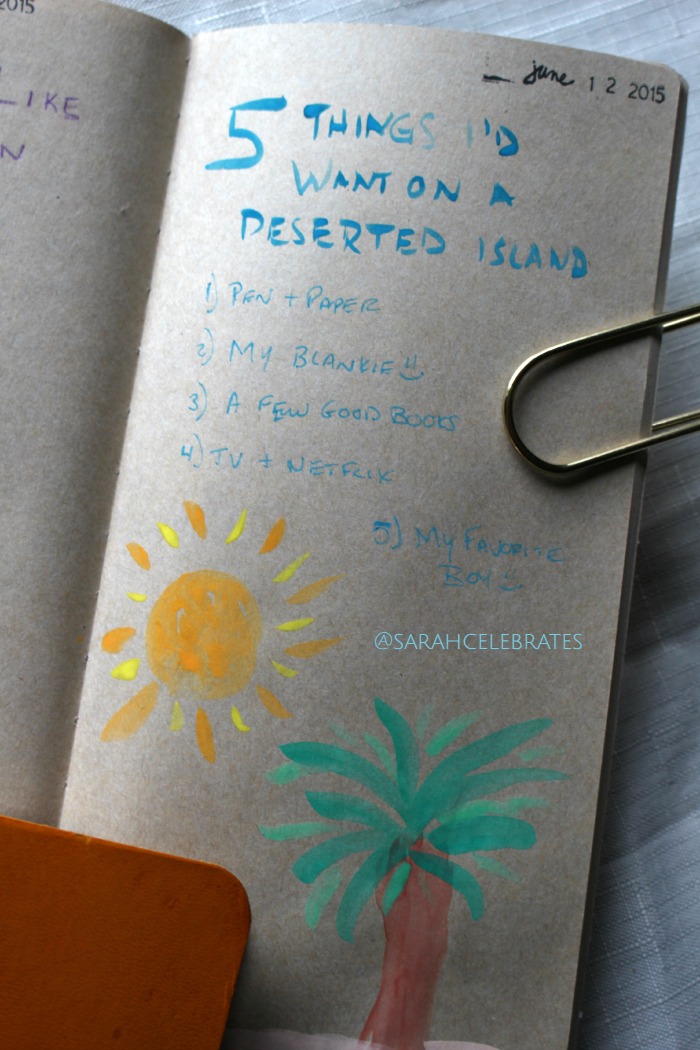 2015
LIKE
N
june 12 2015
5 THINGS I'D
WANT ON A
DESERTED ISLAND
1) PEN + PAPER
2) MY BLANKIE
3) A FEW GOOD BOOKS
4) TV + NETFLIX
5) MY FAVORITE
BOY
@SARAHCELEBRATES